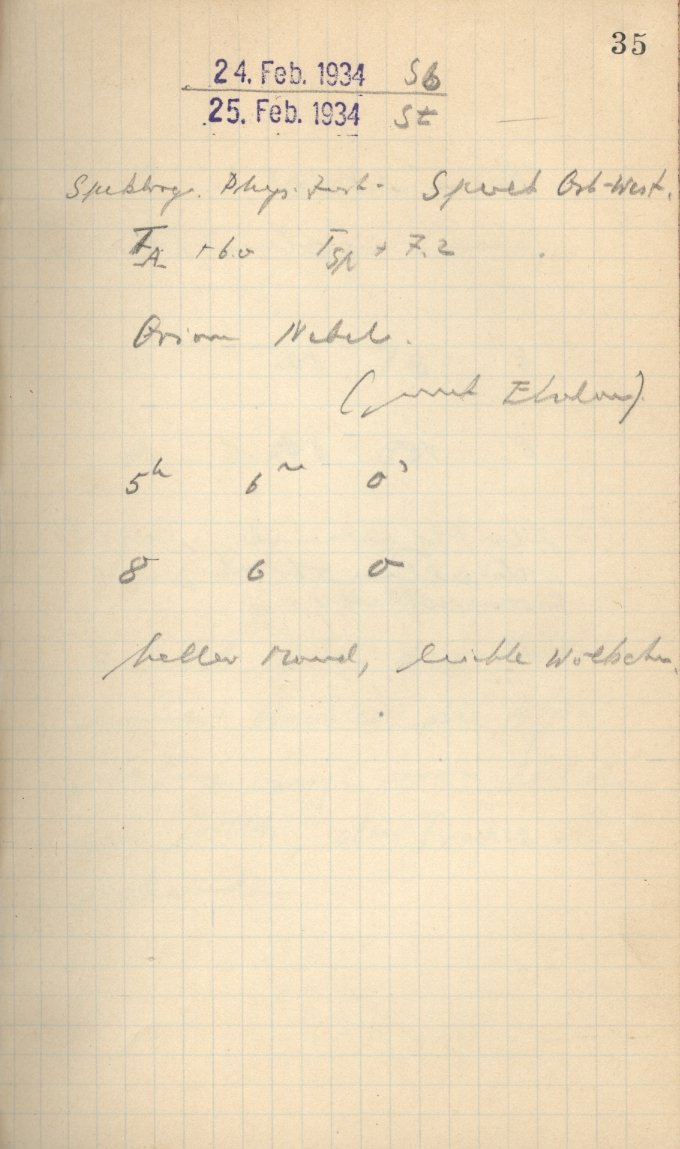 35
24. Feb. 1934 Sb
25. Feb. 1934 St
Spektrogr. Phys. Inst. - Spalt Ost-West.
T_A + 6.0 T_Sp + 7.2
Orion Nebel.
(mit Etalon)
5h 6m 0s
8 6 0
heller Mond, leichte Wölkchen.